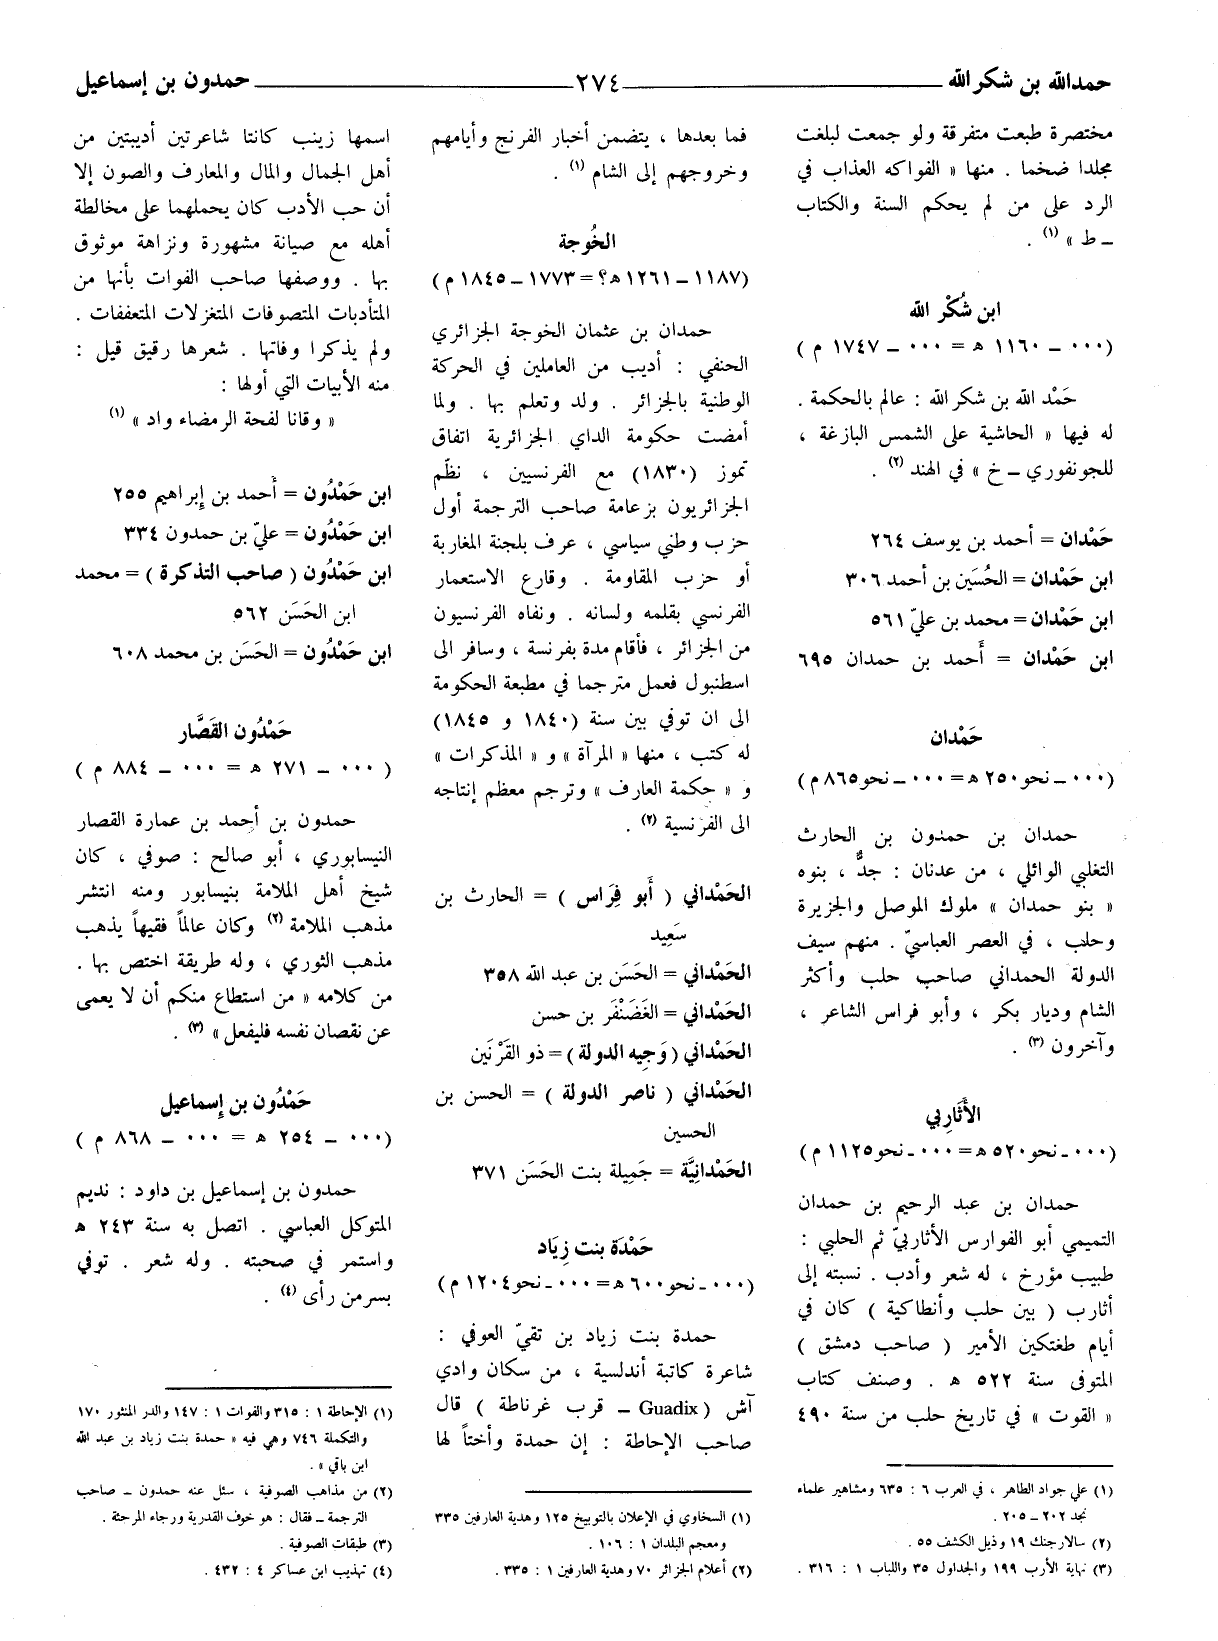 حمدالله بن شكر الله
٢٧٤
حمدون بن إسماعيل
مختصرة طبعت متفرقة ولو جمعت لبلغت
مجلدا ضخما . منها « الفواكه العذاب في
الرد على من لم يحكم السنة والكتاب
ـ ط » (١) .
ابن شُكْر الله
(٠٠٠ ـ ١١٦٠ ه = ٠٠٠ ـ ١٧٤٧ م)
حَمْد الله بن شكر الله : عالم بالحكمة .
له فيها « الحاشية على الشمس البازغة ،
للجونفوري ـ خ » في الهند (٢) .
حَمْدان = أحمد بن يوسف ٢٦٤
ابن حَمْدان = الحُسَين بن أحمد ٣٠٦
ابن حَمْدان = محمد بن عليّ ٥٦١
ابن حَمْدان = أَحمد بن حمدان ٦٩٥
حَمْدان
(٠٠٠ ـ نحو ٢٥٠ ه = ٠٠٠ ـ نحو ٨٦٥ م)
حمدان بن حمدون بن الحارث
التغلبي الوائلي ، من عدنان : جدٌّ ، بنوه
« بنو حمدان » ملوك الموصل والجزيرة
وحلب ، في العصر العباسيّ . منهم سيف
الدولة الحمداني صاحب حلب وأكثر
الشام وديار بكر ، وأبو فراس الشاعر ،
وآخرون (٣) .
الأَثَارِبي
(٠٠٠ ـ نحو ٥٢٠ ه = ٠٠٠ ـ نحو ١١٢٥ م)
حمدان بن عبد الرحيم بن حمدان
التميمي أبو الفوارس الأثاربيّ ثم الحلبي :
طبيب مؤرخ ، له شعر وأدب . نسبته إلى
أثارب ( بين حلب وأنطاكية ) كان في
أيام طغتكين الأمير ( صاحب دمشق )
المتوفى سنة ٥٢٢ ه . وصنف كتاب
« القوت » في تاريخ حلب من سنة ٤٩٠
(١) علي جواد الطاهر ، في العرب ٦ : ٦٣٥ ومشاهير علماء
نجد ٢٠٢ ـ ٢٠٥ .
(٢) سالارجنك ١٩ وذيل الكشف ٥٥ .
(٣) نهاية الأرب ١٩٩ والجداول ٣٥ واللباب ١ : ٣١٦ .
فما بعدها ، يتضمن أخبار الفرنج وأيامهم
وخروجهم إلى الشام (١) .
الخُوجة
(١١٨٧ ـ ١٢٦١ ه؟ = ١٧٧٣ ـ ١٨٤٥ م)
حمدان بن عثمان الخوجة الجزائري
الحنفي : أديب من العاملين في الحركة
الوطنية بالجزائر . ولد وتعلم بها . ولما
أمضت حكومة الداي الجزائرية اتفاق
تموز (١٨٣٠) مع الفرنسيين ، نظّم
الجزائريون بزعامة صاحب الترجمة أول
حزب وطني سياسي ، عرف بلجنة المغاربة
أو حزب المقاومة . وقارع الاستعمار
الفرنسي بقلمه ولسانه . ونفاه الفرنسيون
من الجزائر ، فأقام مدة بفرنسة ، وسافر الى
اسطنبول فعمل مترجما في مطبعة الحكومة
الى ان توفي بين سنة (١٨٤٠ و ١٨٤٥)
له كتب ، منها « المرآة » و « المذكرات »
و « حكمة العارف » وترجم معظم إنتاجه
الى الفرنسية (٢) .
الحَمْداني ( أَبو فِرَاس ) = الحارث بن
سَعِيد
الحَمْداني = الحَسَن بن عبد الله ٣٥٨
الحَمْداني = الغَضَنْفَر بن حسن
الحَمْداني (وَجِيه الدولة) = ذو القَرْنَين
الحَمْداني ( ناصر الدولة ) = الحسن بن
الحسين
الحَمْدانِيَّة = جَمِيلة بنت الحَسَن ٣٧١
حَمْدَة بنت زِيَاد
(٠٠٠ ـ نحو ٦٠٠ ه = ٠٠٠ ـ نحو ١٢٠٤ م)
حمدة بنت زياد بن تقيّ العوفي :
شاعرة كاتبة أندلسية ، من سكان وادي
آش (Guadix ـ قرب غرناطة ) قال
صاحب الإحاطة : إن حمدة وأختاً لها
(١) السخاوي في الإعلان بالتوبيخ ١٢٥ وهدية العارفين ٣٣٥
ومعجم البلدان ١ : ١٠٦ .
(٢) أعلام الجزائر ٧٠ وهدية العارفين ١ : ٣٣٥ .
اسمها زينب كانتا شاعرتين أديبتين من
أهل الجمال والمال والمعارف والصون إلا
أن حب الأدب كان يحملهما على مخالطة
أهله مع صيانة مشهورة ونزاهة موثوق
بها . ووصفها صاحب الفوات بأنها من
المتأدبات المتصوفات المتغزلات المتعففات .
ولم يذكرا وفاتها . شعرها رقيق قيل :
منه الأبيات التي أولها :
« وقانا لفحة الرمضاء واد » (١)
ابن حَمْدُون = أَحمد بن إبراهيم ٢٥٥
ابن حَمْدُون = عليّ بن حمدون ٣٣٤
ابن حَمْدُون ( صاحب التذكرة ) = محمد
ابن الحَسَن ٥٦٢
ابن حَمْدُون = الحَسَن بن محمد ٦٠٨
حَمْدُون القَصَّار
(٠٠٠ ـ ٢٧١ ه = ٠٠٠ ـ ٨٨٤ م )
حمدون بن أحمد بن عمارة القصار
النيسابوري ، أبو صالح : صوفي ، كان
شيخ أهل الملامة بنيسابور ومنه انتشر
مذهب الملامة (٢) وكان عالماً فقيهاً يذهب
مذهب الثوري ، وله طريقة اختص بها .
من كلامه « من استطاع منكم أن لا يعمى
عن نقصان نفسه فليفعل » (٣) .
حَمْدُون بن إسماعيل
(٠٠٠ ـ ٢٥٤ ه = ٠٠٠ ـ ٨٦٨ م )
حمدون بن إسماعيل بن داود : نديم
المتوكل العباسي . اتصل به سنة ٢٤٣ ه
واستمر في صحبته . وله شعر . توفي
بسرمن رأى (٤) .
(١) الإحاطة ١ : ٣١٥ والفوات ١ : ١٤٧ والدر المنثور ١٧٠
والتكملة ٧٤٦ وهي فيه « حمدة بنت زياد بن عبد الله
ابن باقي » .
(٢) من مذاهب الصوفية ، سئل عنه حمدون ـ صاحب
الترجمة ـ فقال : هو خوف القدرية ورجاء المرجئة .
(٣) طبقات الصوفية .
(٤) تهذيب ابن عساكر ٤ : ٤٣٢ .